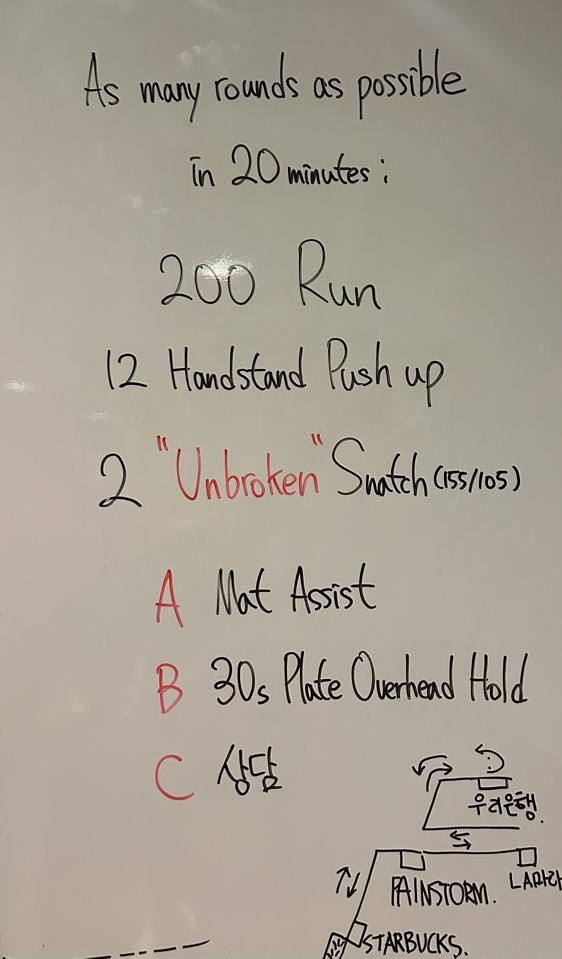 As many rounds as possible
in 20 minutes:
200 Run
12 Handstand Push up
2 "Unbroken" Snatch (155/105)
A Mat Assist
B 30s Plate Overhead Hold
C 상담
우리은행.
PAINSTORM.
LA마라
STARBUCKS.